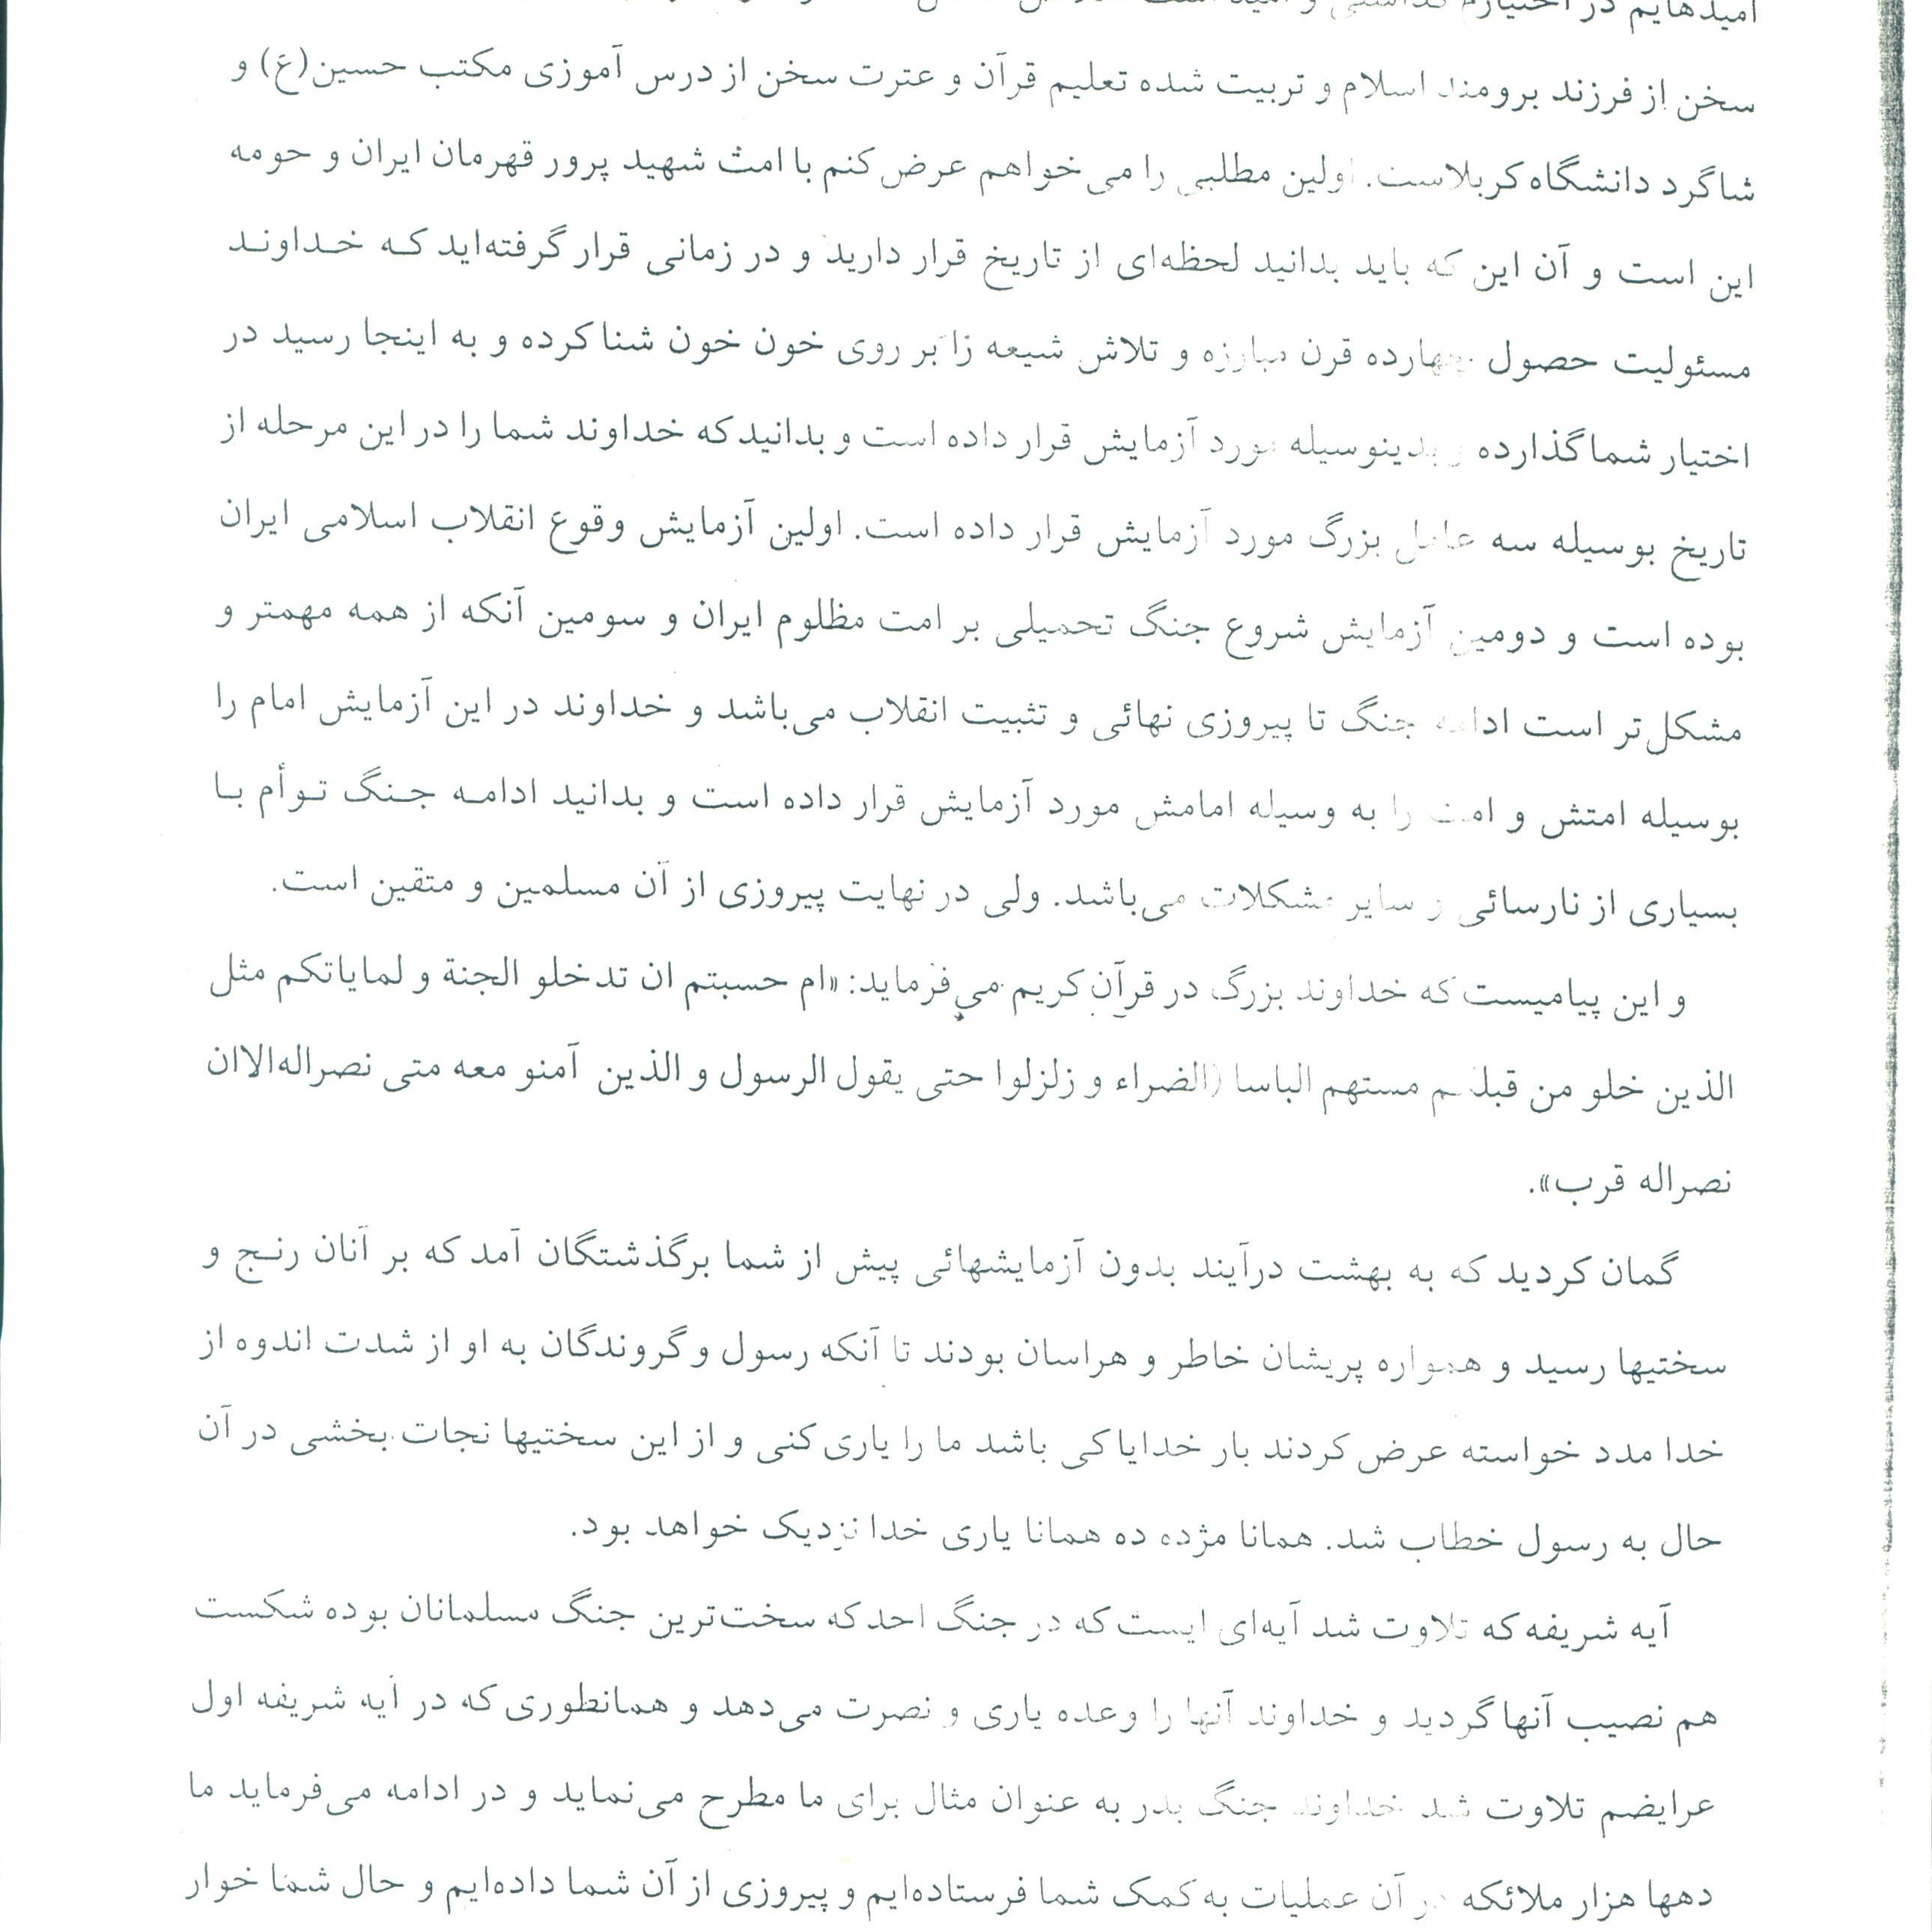 امیدهایم در اختیارم گذاشتی و امید است
سخن از فرزند برومند اسلام و تربیت شده تعلیم قرآن و عترت سخن از درس آموزی مکتب حسین(ع) و
شاگرد دانشگاه کربلاست. اولین مطلبی را می‌خواهم عرض کنم با امت شهید پرور قهرمان ایران و حومه
این است و آن این که باید بدانید لحظه‌ای از تاریخ قرار دارید و در زمانی قرار گرفته‌اید که خداوند
مسئولیت حصول چهارده قرن مبارزه و تلاش شیعه را بر روی خون خون شنا کرده و به اینجا رسید در
اختیار شما گذارده و بدینوسیله مورد آزمایش قرار داده است و بدانید که خداوند شما را در این مرحله از
تاریخ بوسیله سه عامل بزرگ مورد آزمایش قرار داده است. اولین آزمایش وقوع انقلاب اسلامی ایران
بوده است و دومین آزمایش شروع جنگ تحمیلی بر امت مظلوم ایران و سومین آنکه از همه مهمتر و
مشکل‌تر است ادامه جنگ تا پیروزی نهائی و تثبیت انقلاب می‌باشد و خداوند در این آزمایش امام را
بوسیله امتش و امت را به وسیله امامش مورد آزمایش قرار داده است و بدانید ادامه جنگ توأم با
بسیاری از نارسائی و سایر مشکلات می‌باشد. ولی در نهایت پیروزی از آن مسلمین و متقین است.
و این پیامیست که خداوند بزرگ در قرآن کریم می‌فرماید: «ام حسبتم ان تدخلو الجنة و لمایاتکم مثل
الذین خلو من قبلکم مستهم الباسا (الضراء و زلزلوا حتی یقول الرسول و الذین آمنو معه متی نصراله‌الاان
نصراله قرب».
گمان کردید که به بهشت درآیند بدون آزمایشهائی پیش از شما برگذشتگان آمد که بر آنان رنج و
سختیها رسید و همواره پریشان خاطر و هراسان بودند تا آنکه رسول و گروندگان به او از شدت اندوه از
خدا مدد خواسته عرض کردند بار خدایا کی باشد ما را یاری کنی و از این سختیها نجات بخشی در آن
حال به رسول خطاب شد. همانا مژده ده همانا یاری خدا نزدیک خواهد بود.
آیه شریفه که تلاوت شد آیه‌ای ایست که در جنگ احد که سخت‌ترین جنگ مسلمانان بوده شکست
هم نصیب آنها گردید و خداوند آنها را وعده یاری و نصرت می‌دهد و همانطوری که در آیه شریفه اول
عرایضم تلاوت شد خداوند جنگ بدر به عنوان مثال برای ما مطرح می‌نماید و در ادامه می‌فرماید ما
دهها هزار ملائکه در آن عملیات به کمک شما فرستاده‌ایم و پیروزی از آن شما داده‌ایم و حال شما خوار